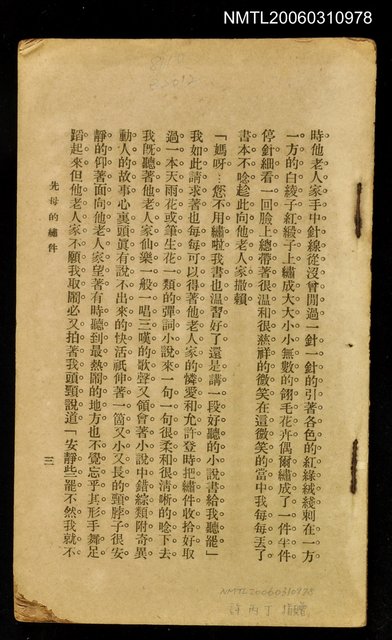 NMTL20060310978
時他老人家手中針線從沒曾閒過一針一針的引著各色的紅綠絨綫刺在一方
一方的白綾子紅緞子上繡成大大小小無數的翎毛花卉偶爾繡成了一件半件
停針細看一回臉上總帶著很温和很慈祥的微笑在這微笑的當中我每每丟了
書本不唸趁此向他老人家撒賴
「媽呀…您不用繡啦我書也温習好了還是講一段好聽的小說書給我聽罷」
我如此請求著也每每可以得著他老人家的憐愛和允許登時把繡件收拾好取
過一本天雨花或筆生花一類的彈詞小說來一句一句很柔和很清晰的唸下去
我旣聽著他老人家仙樂一般一唱三嘆的歌聲又領會著小說中錯綜類附奇異
動人的故事心裏頭眞有說不出來的快活祇伸著一箇又小又長的頸脖子很安
靜的仰著面向他老人家望著有時聽到最熱鬧的地方也不覺忘乎其形手舞足
蹈起來但他老人家不願我取鬧必又拍著我頭頸說道「安靜些罷不然我就不
先母的繡件
三
NMTL20060310978
許丙丁 捐贈